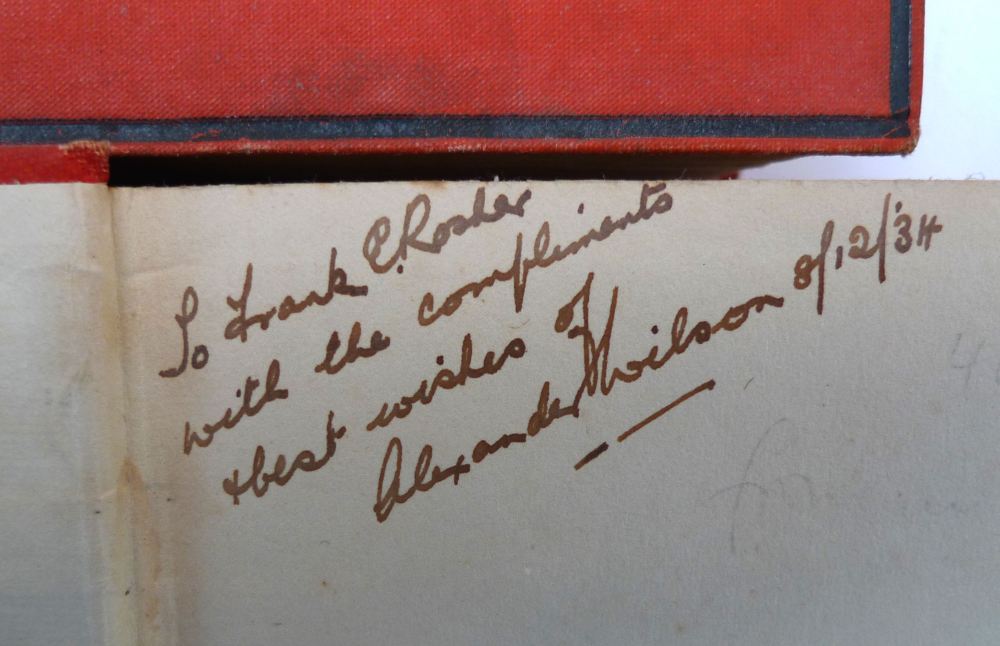 To Frank C. Rosher
with the compliments
& best wishes of
Alexander Wilson 8/12/'34